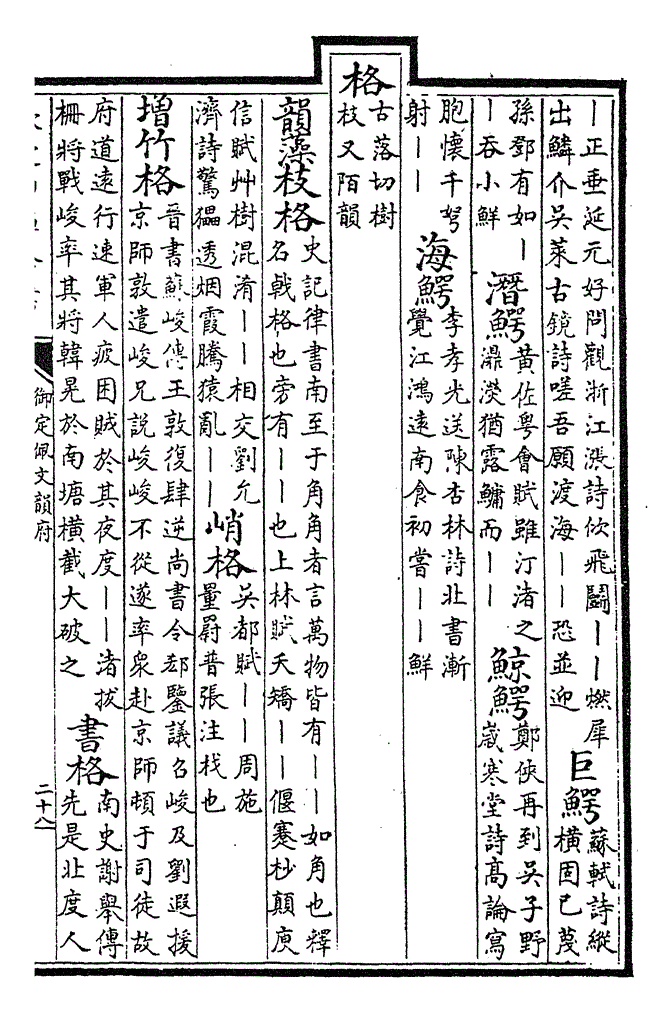 ｜正垂延元好問觀浙江漲詩佽飛鬭｜｜燃犀
出鱗介吳萊古鏡詩嗟吾願渡海｜｜恐並迎
巨鰐
蘇軾詩縱
橫固已蔑
孫鄧有如｜
｜吞小鮮
潛鰐
黄佐粤會賦雖汀渚之
濎濙猶露鱅而｜｜
鯨鰐
鄭俠再到吳子野
歲寒堂詩髙論寫
胞懷千弩
射｜｜
海鰐
李孝光送陳杏林詩北書漸
覺江鴻遠南食初嘗｜｜鮮
格
古落切樹
枝又陌韻
韻藻枝格
史記律書南至于角角者言萬物皆有｜｜如角也釋
名戟格也旁有｜｜也上林賦夭矯｜｜偃蹇杪顛庾
信賦艸樹混淆｜｜相交劉允
濟詩驚猵透烟霞騰猿亂｜｜
峭格
吳都賦｜｜周施
量罻普張注栈也
增竹格
晉書蘇峻傳王敦復肆逆尚書令郄鑒議召峻及劉遐援
京師敦遣峻兄說峻峻不從遂率衆赴京師頓于司徒故
府道遠行速軍人疲困賊於其夜度｜｜渚拔
栅將戰峻率其將韓晃於南塘橫截大破之
書格
南史謝舉傳
先是北度人
御定佩文韻府
二十八